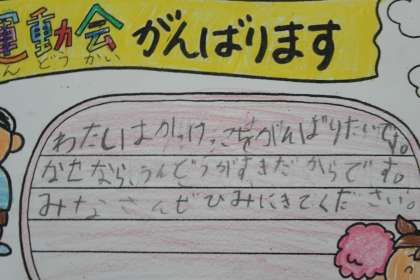 運動会 がんばります
んどうかい
わたしはかけっこをがんばりたいです。
なぜなら、うんどうがすきだからです。
みなさんぜひみにきてください。